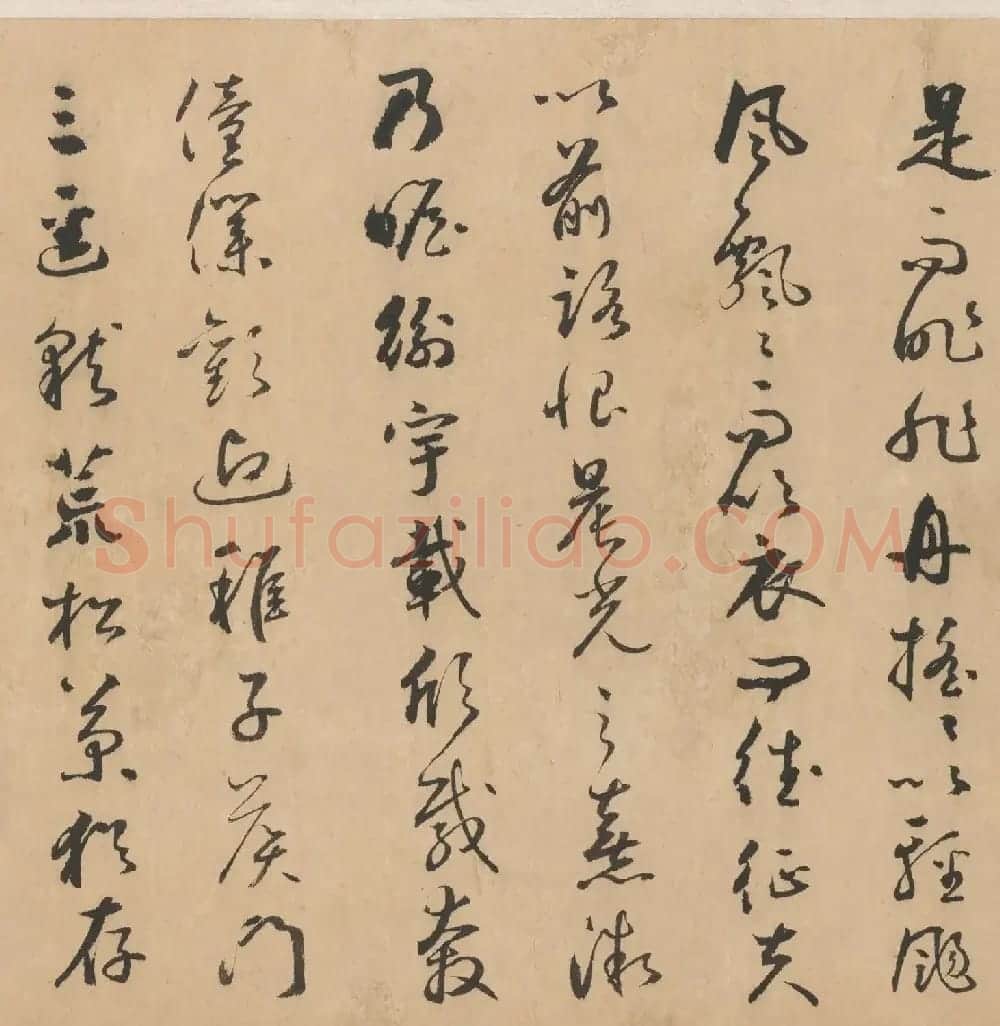 是而昨非舟搖〻以輕颺
風飄〻而吹衣問往征夫
以前路恨晨光之熹微
乃瞻衡宇載欣載奔
僮僕歡迎稚子候門
三逕就荒松菊猶存
Shufaziliao.COM